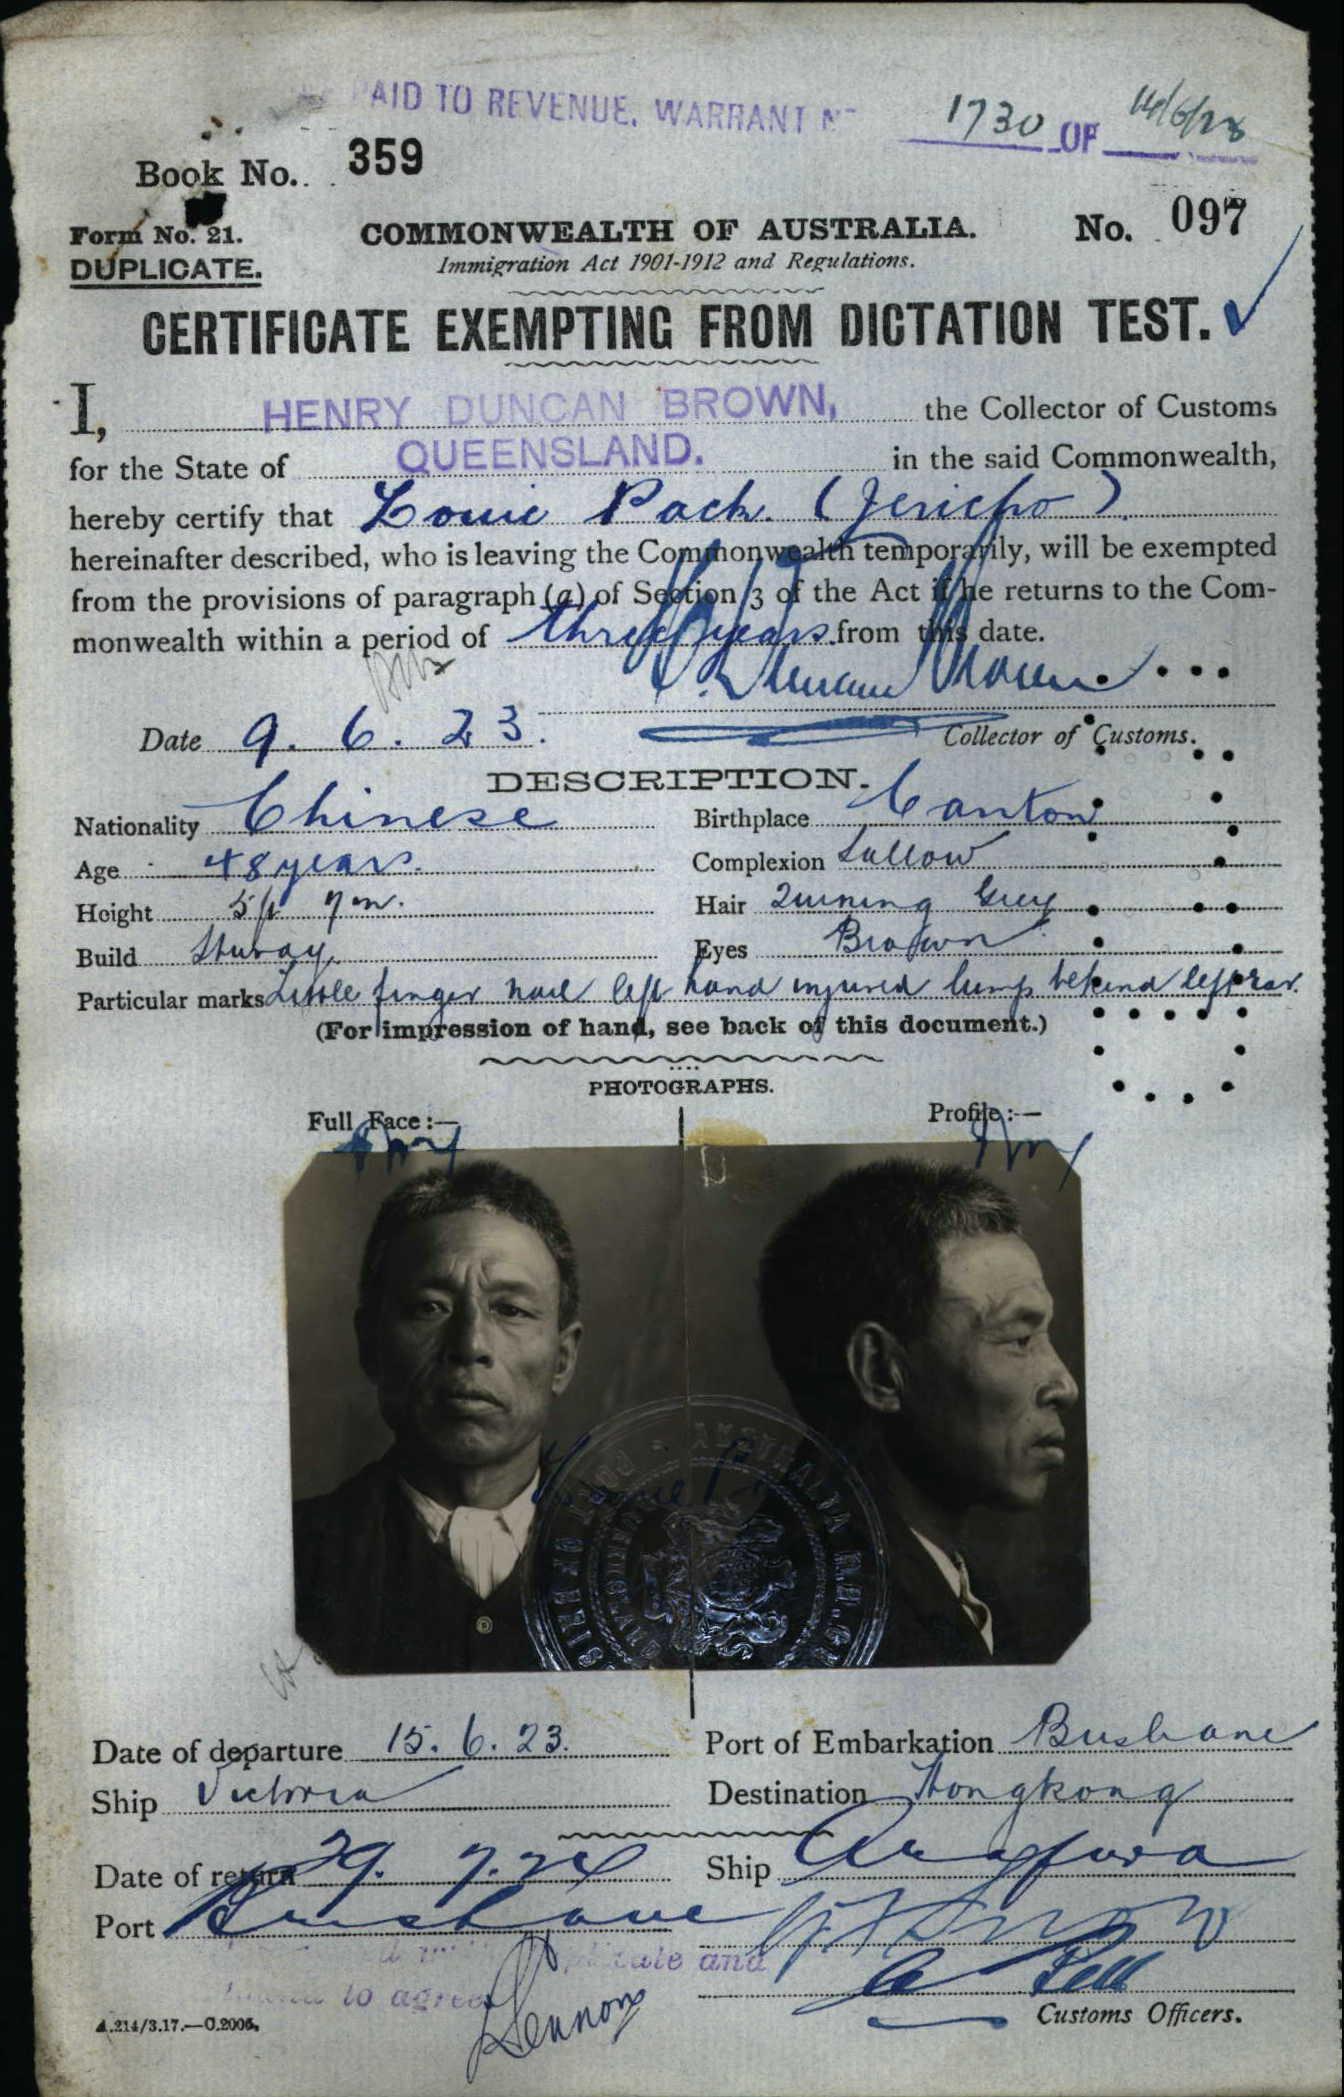 PAID TO REVENUE. WARRANT No 1730 OF 14/6/23
Book No. 359
Form No. 21.
DUPLICATE.
COMMONWEALTH OF AUSTRALIA.
No. 097
Immigration Act 1901-1912 and Regulations.
CERTIFICATE EXEMPTING FROM DICTATION TEST.
I, HENRY DUNCAN BROWN, the Collector of Customs
for the State of QUEENSLAND. in the said Commonwealth,
hereby certify that Louie Pack. (Jericho)
hereinafter described, who is leaving the Commonwealth temporarily, will be exempted
from the provisions of paragraph (a) of Section 3 of the Act if he returns to the Com-
monwealth within a period of three years from this date.
H. Duncan Brown
Date 9.6.23.
Collector of Customs.
DESCRIPTION.
Nationality Chinese
Birthplace Canton
Age 48 years.
Complexion Sallow
Height 5ft 7in.
Hair Turning Grey
Build Sturdy
Eyes Brown
Particular marks Little finger nail left hand injured lump behind left ear.
(For impression of hand, see back of this document.)
PHOTOGRAPHS.
Full Face:—
Profile:—
Louie P
Date of departure 15.6.23.
Port of Embarkation Brisbane
Ship Victoria
Destination Hongkong
Date of return 29.7.24
Ship Arafura
Port Brisbane
duplicate and
found to agree
Customs Officers.
A.214/3.17.—C.2006.